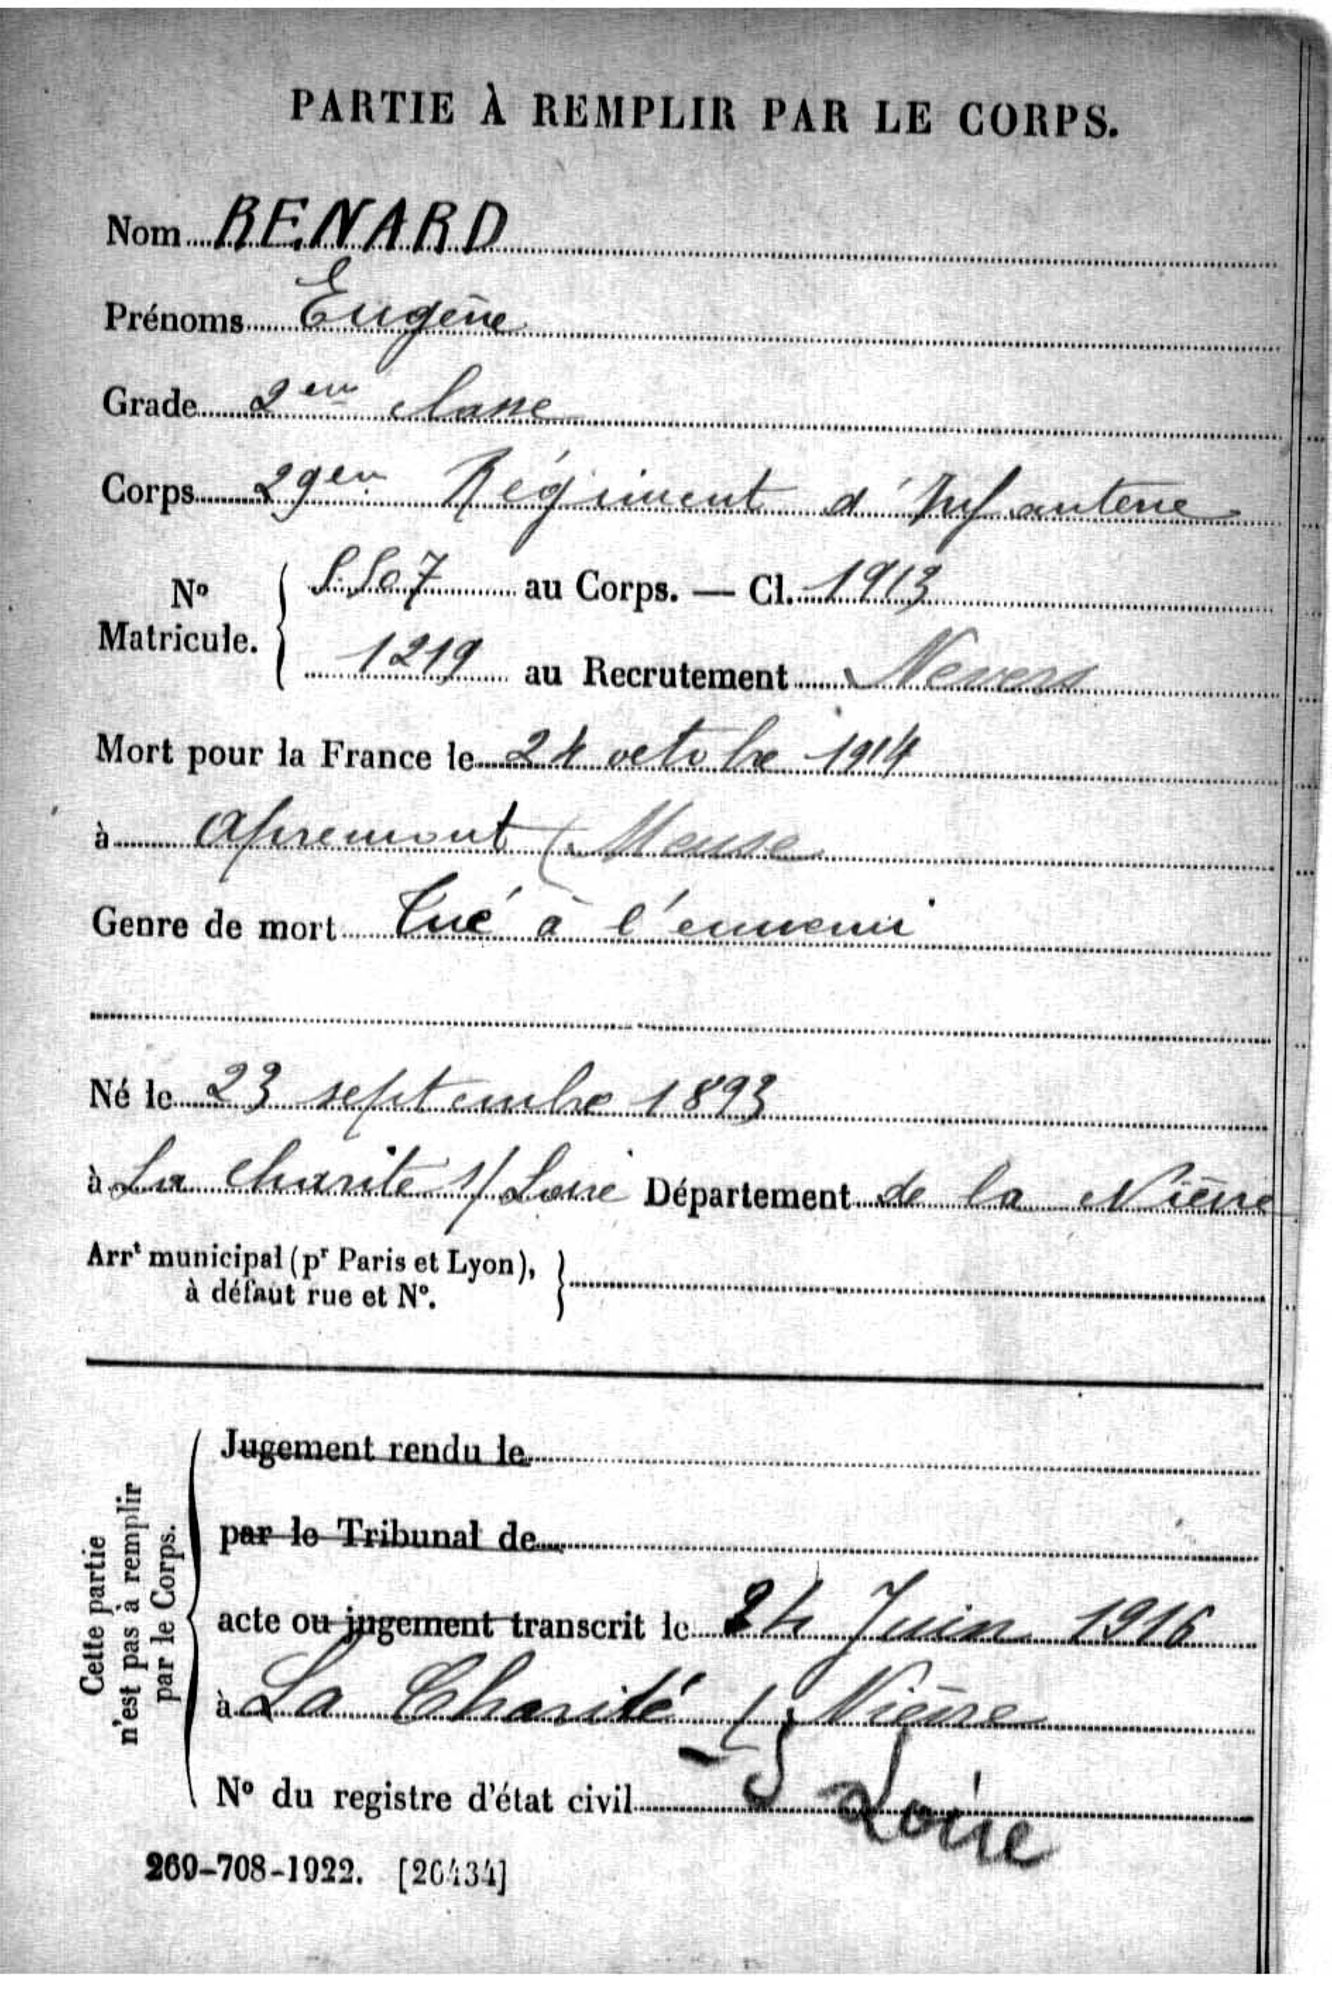 PARTIE À REMPLIR PAR LE CORPS.
Nom RENARD
Prénoms Eugène
Grade 2em classe
Corps 29em Régiment d'Infanterie
No Matricule. { 5.507 au Corps. — Cl. 1913
1219 au Recrutement Nevers
Mort pour la France le 24 octobre 1914
à Apremont (Meuse
Genre de mort Tué à l'ennemi
Né le 23 septembre 1893
à La Charité s/ Loire Département de la Nièvre
Arrt municipal (pr Paris et Lyon), }
à défaut rue et No.
Cette partie n'est pas à remplir par le Corps.
Jugement rendu le
par le Tribunal de
acte ou jugement transcrit le 24 Juin 1916
à La Charité (Nièvre
- S Loire
No du registre d'état civil
269-708-1922. [26434]